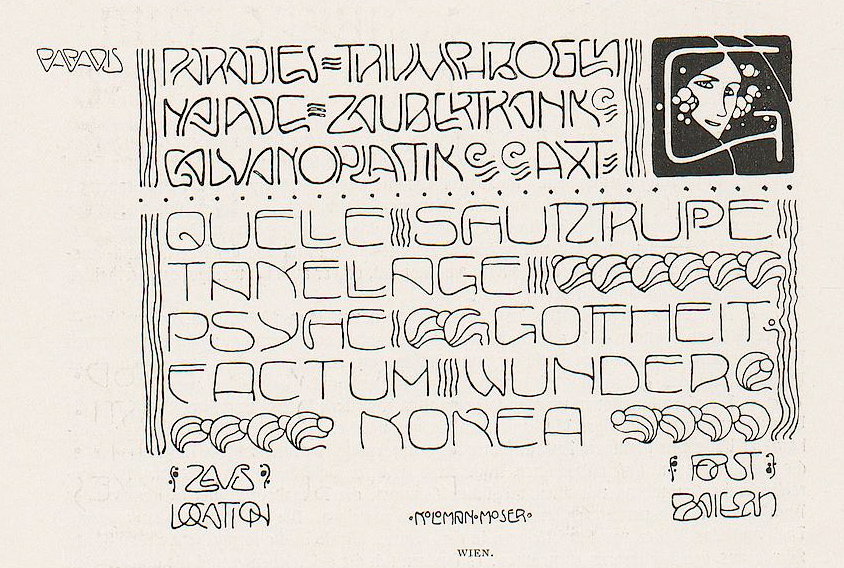 PARADIES=TRIUMPHBOGEN
NAJADE=ZAUBERTRANK
GALVANOPLASTIK AXT
QUELLE SCHUTZTRUPPE
TAKELLAGE
PSYCHE GOTTHEIT.
FACTUM WUNDER
KOREA
ZEUS
LOCATION
FORST
·KOLOMAN·MOSER·
WIEN.